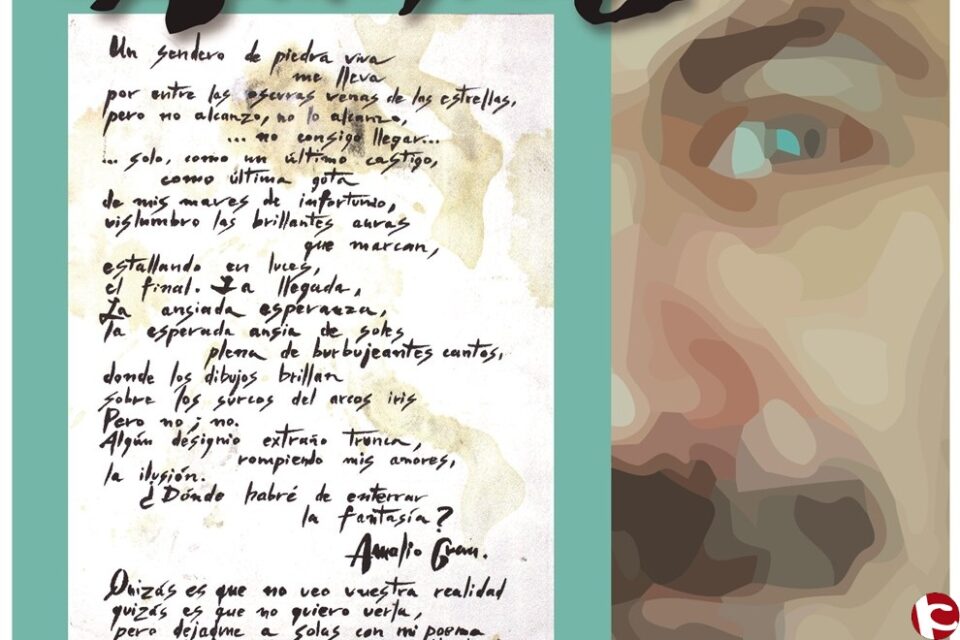 Un sendero de piedra viva
me lleva
por entre las oscuras venas de las estrellas,
pero no alcanzo, no lo alcanzo,
... no consigo llegar...
... solo, como un último castigo,
como última gota
de mis mares de infortunio,
vislumbro las brillantes auras
que marcan,
estallando en luces,
el final. La llegada,
La ansiada esperanza,
la esperada ansia de soles
plena de burbujeantes cantos,
donde los dibujos brillan
sobre los surcos del arcos iris
Pero no; no.
Algún designio extraño trunca,
rompiendo mis amores,
la ilusión.
¿Dónde habré de enterrar
la fantasía?
Amalio Gran.
Quizás es que no veo vuestra realidad
quizás es que no quiero verla,
pero dejadme a solas con mi poema